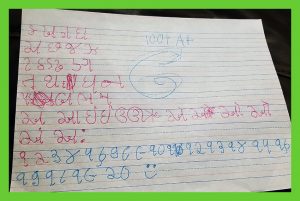 100% A+
ક ખ ગ ઘ
ચ છ જ ઝ
ટ ઠ ડ ઢ ણ
ત થ ધ ન
બ ભ મ
અ આ ઇ ઈ ઉ ઊ એ ઓ ઔ
અં અઃ
૧ ૨ ૩ ૪ ૫ ૬ ૭ ૮ ૯ ૧૦ ૧૧ ૧૨ ૧૩ ૧૪ ૧૫ ૧૬
૧૭ ૧૮ ૧૯ ૨૦